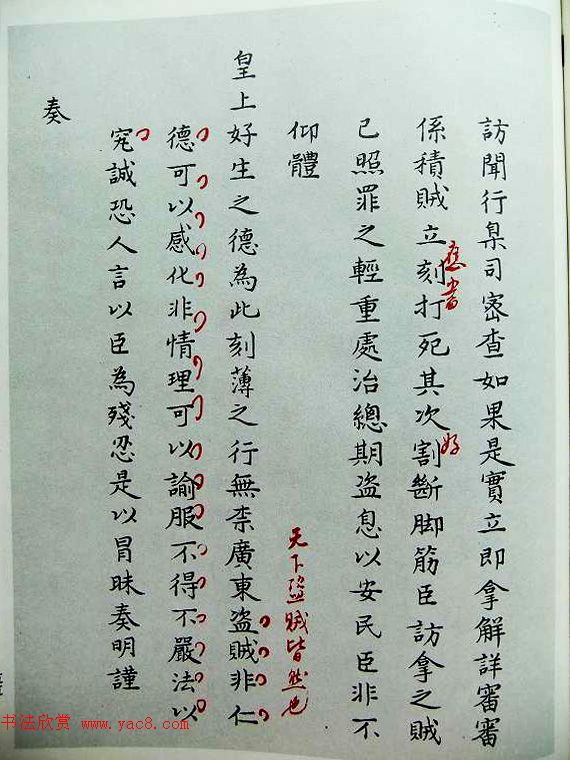 訪聞行臬司宻查如果是實立即拿解詳審審
係積賊立刻打死其次割斷脚筋臣訪拿之賊
應當
好
已照罪之輕重處治總期盗息以安民臣非不
仰體
天下盜賊皆然也
皇上好生之德為此刻薄之行無柰廣東盗賊非仁
德可以感化非情理可以諭服不得不嚴法以
究誠恐人言以臣為殘忍是以冒昧奏明謹
奏
书法欣赏 www.yac8.com